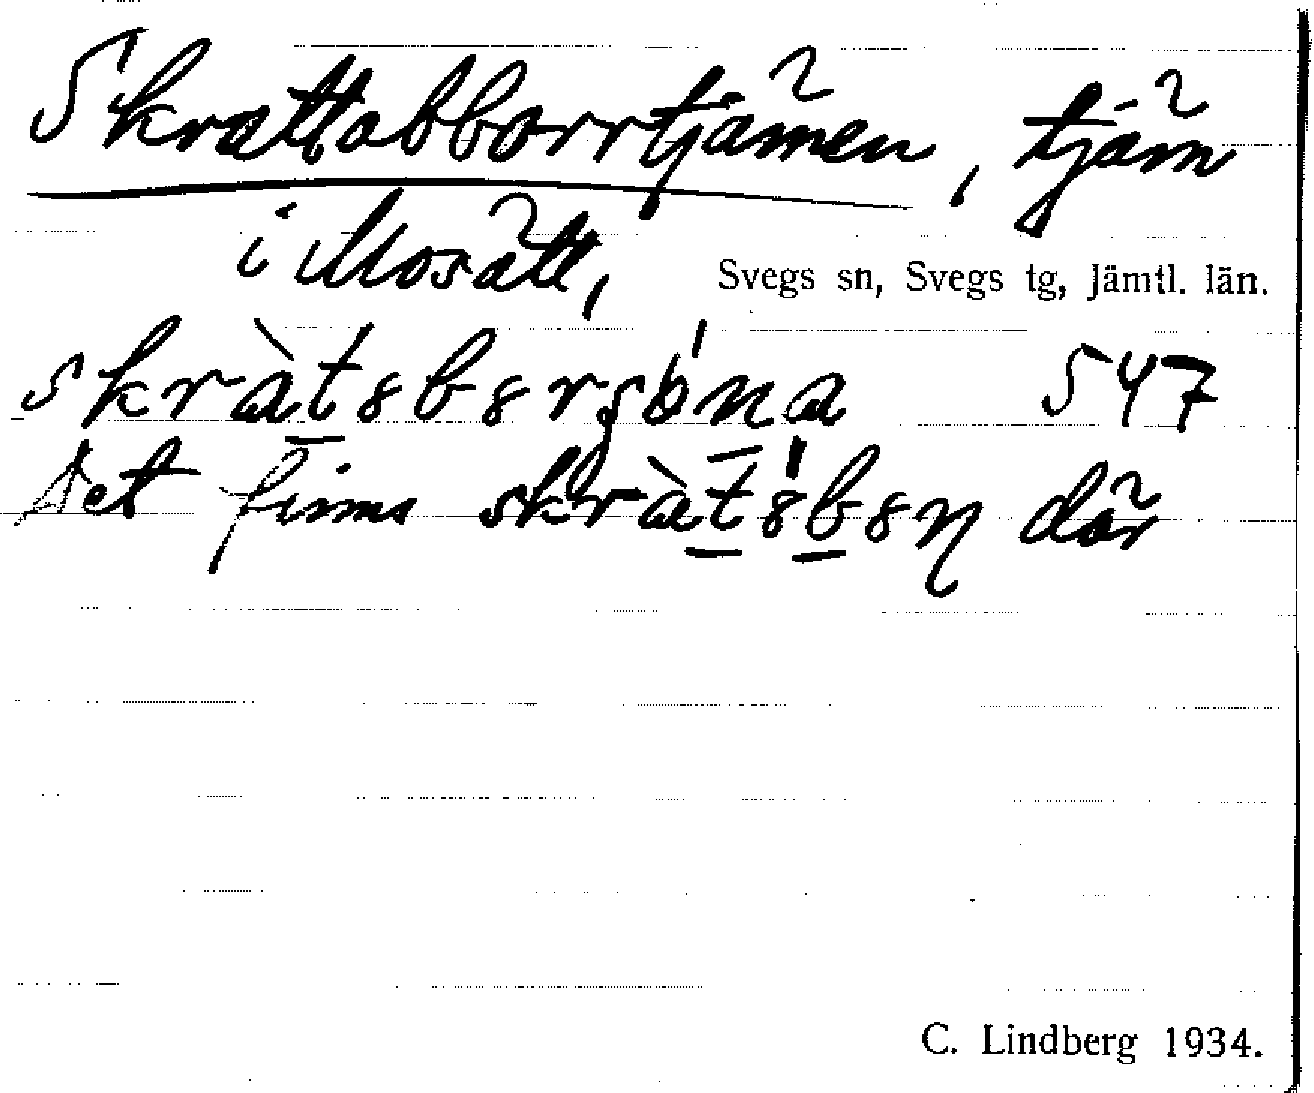 Skrattabborrtjärnen, tjärn
i Mosätt,
Svegs sn, Svegs tg, Jämtl. län.
547
Det finns där
C. Lindberg 1934.